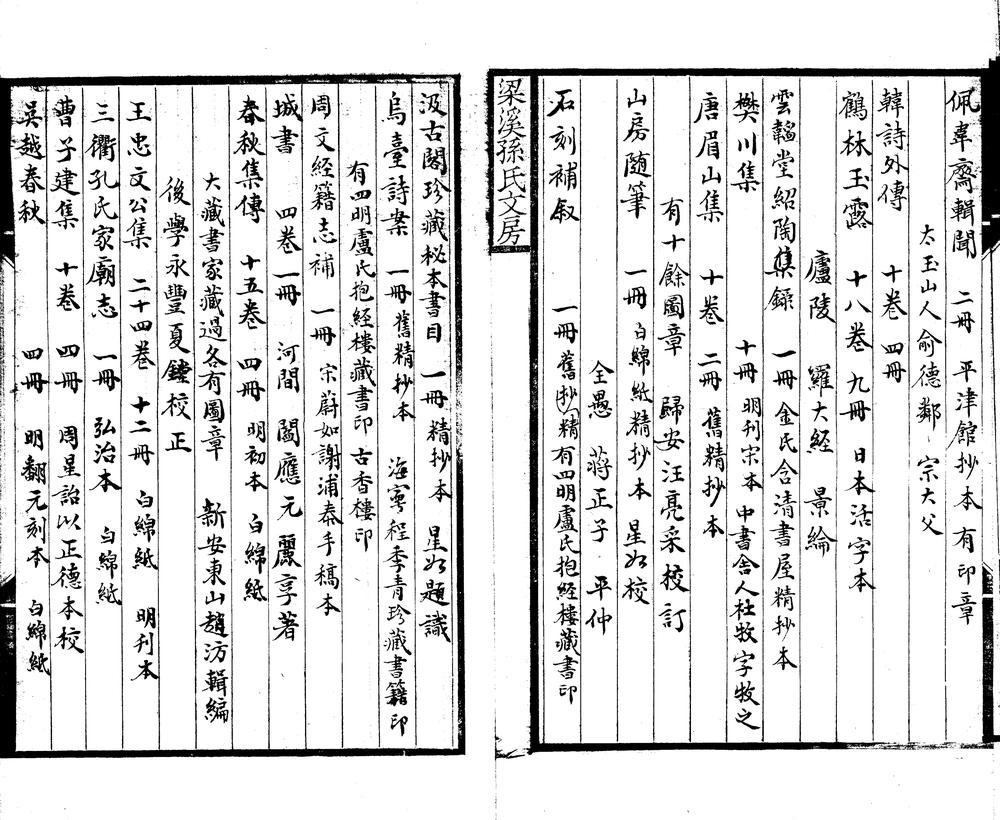 佩韋齋輯聞　二冊　平津館抄本　有印章
太玉山人俞德鄰　宗大父
韓詩外傳　十卷　四冊
鶴林玉露　十八卷　九冊　日本活字本
廬陵　羅大經　景綸
雲韜堂紹陶集錄　一冊　金氏含清書屋精抄本
樊川集　十冊　明刊宋本　中書舍人杜牧字牧之
唐眉山集　十卷　二冊　舊精抄本
有十餘圖章　歸安汪亮采校訂
山房随筆　一冊　白綿紙精抄本　星如校
全愚　蔣正子　平仲
石刻補敘　一冊　舊抄精　有四明盧氏抱經樓藏書印
梁溪孫氏文房
汲古閣珍藏秘本書目　一冊　精抄本　星如題識
烏臺詩案　一冊　舊精抄本　海寧程季青珍藏書籍印
有四明盧氏抱經樓藏書印　古香樓印
周文經籍志補　一冊　宋蔚如謝浦泰手稿本
城書　四卷一冊　河間　閻應元　麗亨著
春秋集傳　十五卷　四冊　明初本　白綿紙
大藏書家藏過各有圖章　新安東山趙汸輯編
後學永豐夏鏜校正
王忠文公集　二十四卷　十二冊　白綿紙　明刊本
三衢孔氏家廟志　一冊　弘治本　白綿紙
曹子建集　十卷　四冊　周星詒以正德本校
吳越春秋　四冊　明翻元刻本　白綿紙